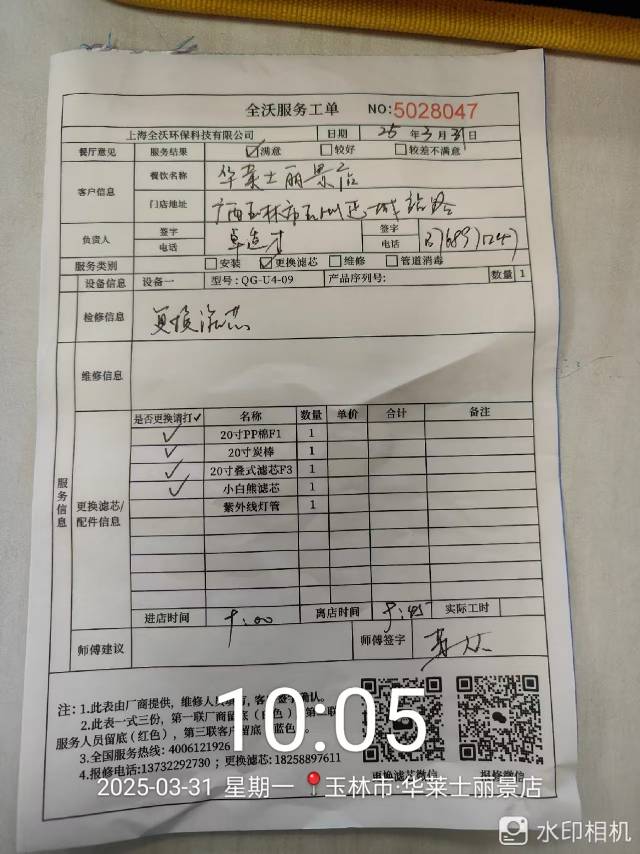 全沃服务工单 NO:5028047
上海全沃环保科技有限公司 日期 25 年 3 月 31 日
餐厅意见 服务结果 ☑满意 □较好 □较差不满意
客户信息 餐饮名称 华莱士丽景店
门店地址 广西玉林市
负责人 签字 签字
电话 电话
服务类别 □安装 ☑更换滤芯 □维修 □管道消毒
设备信息 设备一 型号: QG-U4-09 产品序列号: 数量 1
检修信息 更换滤芯
维修信息
服务信息
更换滤芯/配件信息
是否更换请打✓ 名称 数量 单价 合计 备注
✓ 20寸PP棉F1 1
✓ 20寸炭棒 1
✓ 20寸叠式滤芯F3 1
✓ 小白熊滤芯 1
紫外线灯管 1
进店时间 9:00 离店时间 9:45 实际工时
师傅建议 师傅签字
注: 1.此表由厂商提供, 维修人 客 确认。
2.此表一式三份, 第一联厂商留底(白色) 第二联
服务人员留底(红色), 第三联客户留底 蓝色
3.全国服务热线: 4006121926
4.报修电话:13732292730 ; 更换滤芯: 18258897611
更换滤芯微信 报修微信
10:05
2025-03-31 星期一 玉林市·华莱士丽景店
水印相机